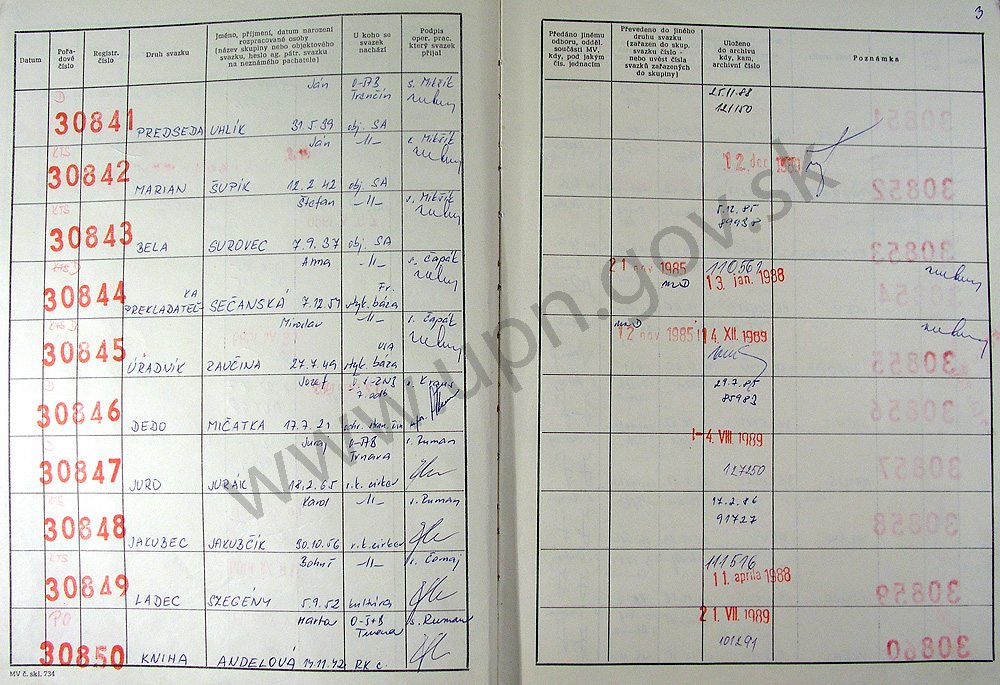 3
Datum
Pořadové číslo
Registr. číslo
Druh svazku
Jméno, příjmení, datum narození rozpracované osoby (název skupiny nebo objektového svazku, heslo ag. pátr. svazku na neznámého pachatele)
U koho se svazek nachází
Podpis oper. prac. který svazek přijal
Předáno jinému odboru, odděl. součásti MV, kdy, pod jakým čís. jednacím
Převedeno do jiného druhu svazku (zařazen do skup. svazku číslo - nebo uvést čísla svazků zařazených do skupiny)
Uloženo do archivu kdy, kam, archivní číslo
Poznámka
Ján
Trenčín
30841 PREDSEDA UHLÍK 31.5.39 obj. SA
25.11.88
121150
KTS
Ján -11-
30842 MARIAN ŠUPÍK 12.2.42 obj. SA
12. dec. 1989
KTS
Štefan -11-
30843 BELA SUROVEC 7.9.37 obj. SA
5.12.85
89938
Anna -11- s. Čapák
30844 PREKLADATEĽ- KA SEČANSKÁ 7.12.51 Fr. Myt. báza
21 nov 1985
110561
13. jan. 1988
Miroslav -11- s. Čapák
30845 ÚRADNÍK ZAUČINA 27.7.49 VIA Myt. báza
12 nov 1985
14. XII. 1989
Jozef
30846 DEDO MIČATKA 17.7.21
29.7.85
85983
Juraj Trnava s. Ruman
30847 JURO JURÁK 18.2.65 r.k. cirkev
1-4. VIII. 1989
127250
KTS
Karol -11- s. Ruman
30848 JAKUBEC JAKUBČÍK 30.10.56 r.k. cirkev
17.2.86
91727
KTS
Bohuš -11-
30849 LADEC SZEGÉNY 5.9.52 kultúra
111516
11. apríla 1988
PO
Marta Trnava s. Ruman
30850 KNIHA ANDELOVÁ 14.11.42 RK c.
21. VII. 1989
101291
MV č. skl. 734
www.upn.gov.sk